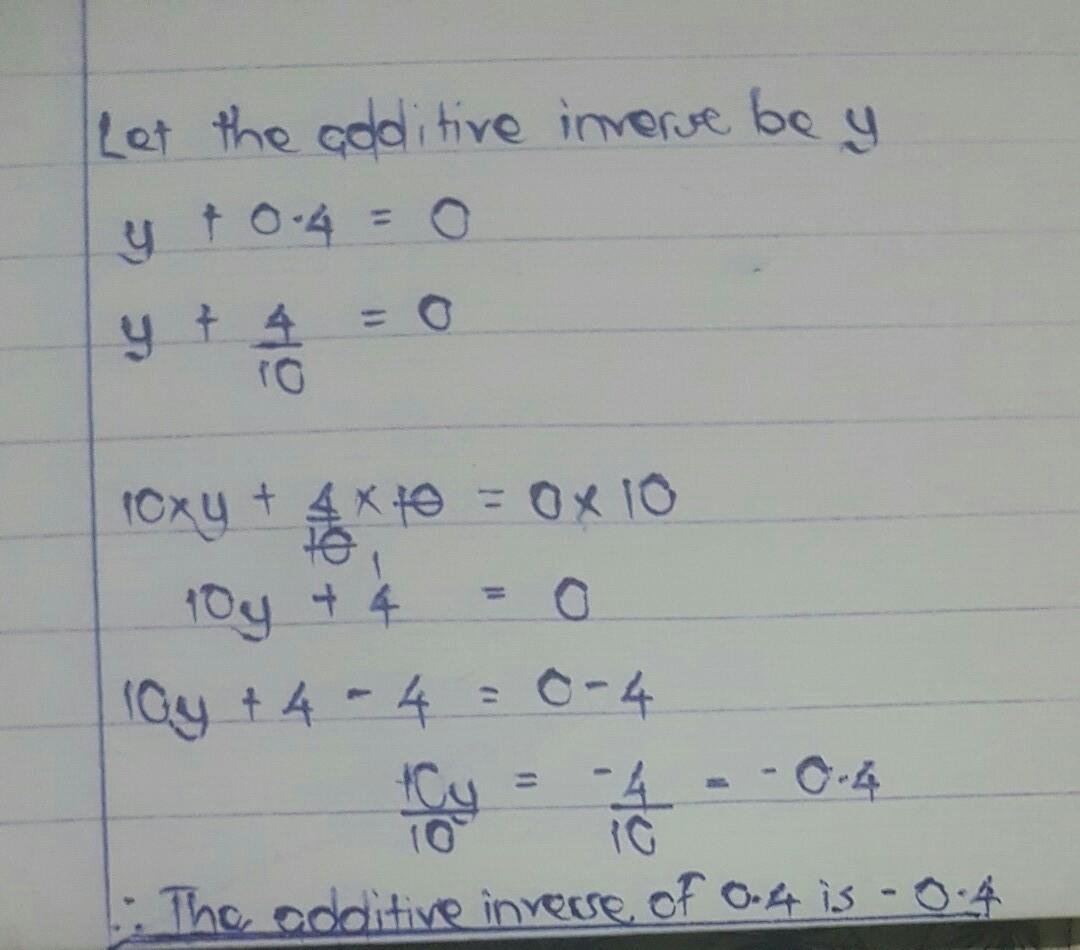 Let the additive inverse be y
y + 0.4 = 0
y + 4/10 = 0
10xy + 4/10 x 10 = 0 x 10
1
10y + 4 = 0
10y + 4 - 4 = 0 - 4
10y/10 = -4/10 = -0.4
∴ The additive inverse of 0.4 is -0.4